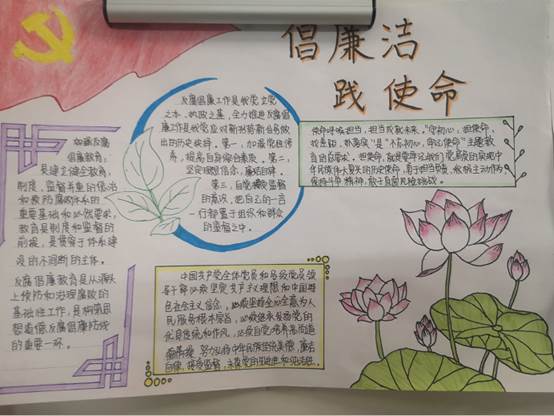 倡廉洁
践使命
加强反腐
倡廉教育,
是建立健全教育、
制度、监督并重的惩治
和预防腐败体系的
重要基础和必然要求,
教育是制度和监督的
前提,是贯穿于体系建
设的不间断的主体。
反腐倡廉教育是从源头
上预防和治理腐败的
基础性工作,是构筑思
想道德反腐倡廉防线
的重要一环。
反腐倡廉工作是我党立党
之本、执政之基,全力推进反腐倡
廉工作是我党应对新形势新任务做
出的历史抉择。第一,加强党性修
养,提高自身综合素质。第二,
坚定理想信念,廉洁自律。
第三,自觉接受监督
的意识,把自己的一言
一行都置于组织和群众
的监督之中。
使命呼唤担当,担当成就未来。"守初心,担使命,
找差距,抓落实"是"不忘初心、牢记使命"主题教
育的总要求。担使命,就是要牢记我们党肩负的实现中
华民族伟大复兴的历史使命,勇于担当负责,积极主动作为,
保持斗争精神,敢于直面风险挑战。
中国共产党全体党员和各级党员领
导干部必须坚定共产主义理想和中国特
色社会主义信念,必须坚持全心全意为人
民服务根本宗旨,必须继承发扬党的
优良传统和作风,必须自觉培养高尚道
德情操,努力弘扬中华民族传统美德,廉洁
自律,接受监督,永葆党的先进性和纯洁性。